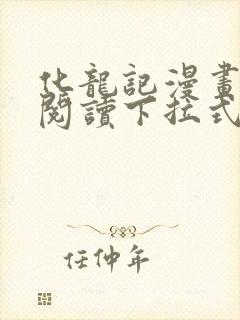 化龍記漫畫
閱讀下拉式
任仲年